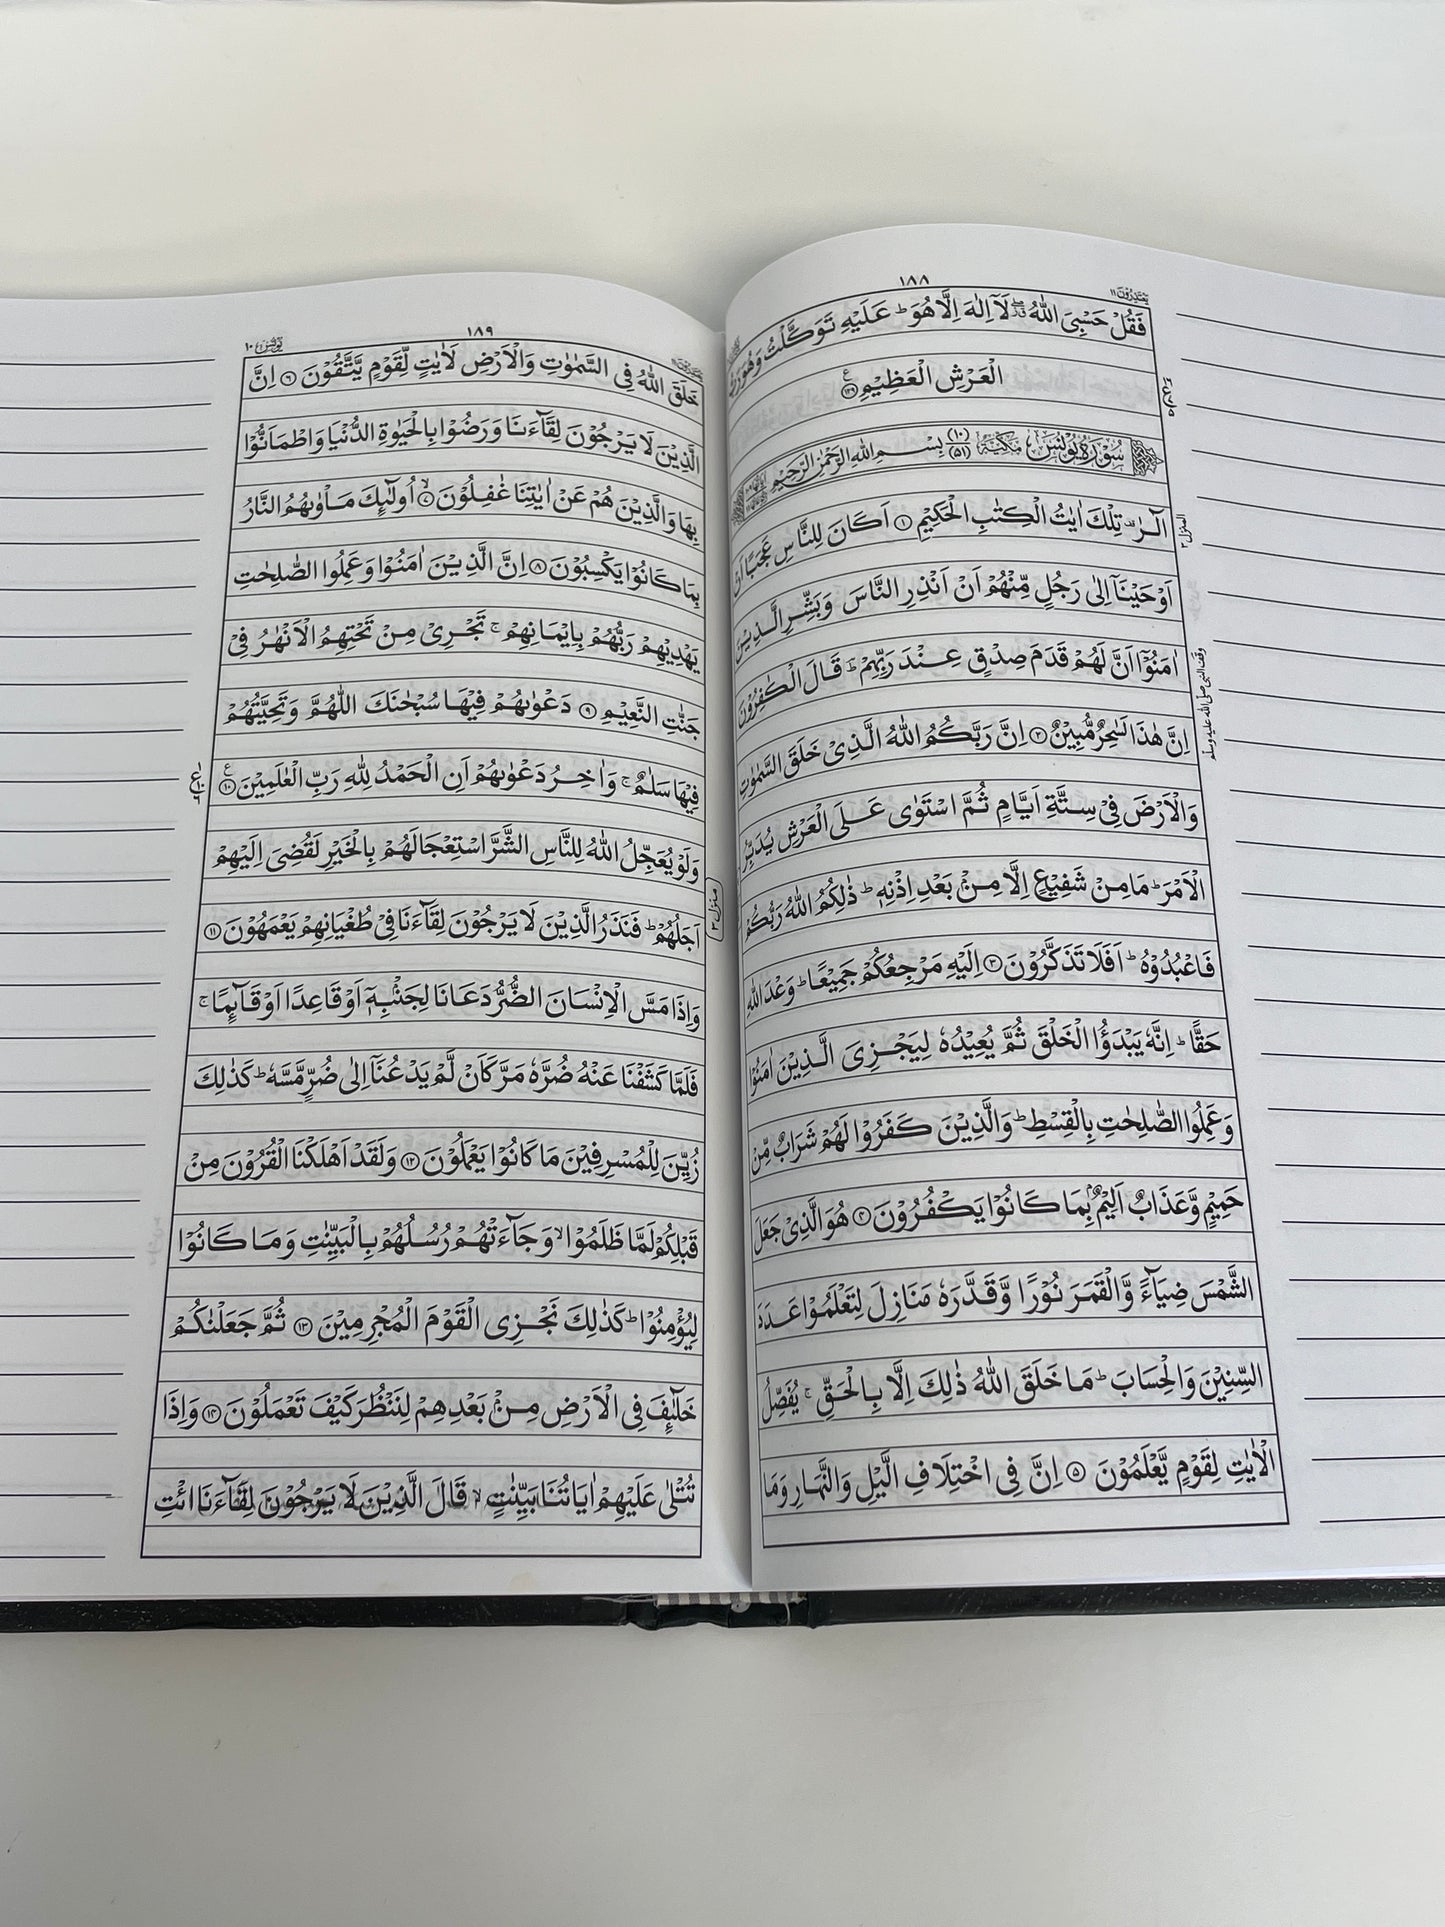 يعتذرون ١١
١٨٨
فَقُلْ حَسْبِيَ اللّٰهُ ۖ لَآ اِلٰهَ اِلَّا هُوَ ؕ عَلَيْهِ تَوَكَّلْتُ وَهُوَ رَبُّ
الْعَرْشِ الْعَظِيْمِ ﴿۱۲۹﴾
سُوْرَةُ يُوْنُسَ مَكِّيَّةٌ (١٠) (٥١) بِسْمِ اللّٰهِ الرَّحْمٰنِ الرَّحِيْمِ
الٓرٰ ۟ تِلْكَ اٰيٰتُ الْكِتٰبِ الْحَكِيْمِ ﴿۱﴾ اَكَانَ لِلنَّاسِ عَجَبًا اَنْ
اَوْحَيْنَآ اِلٰى رَجُلٍ مِّنْهُمْ اَنْ اَنْذِرِ النَّاسَ وَبَشِّرِ الَّذِيْنَ
اٰمَنُوْٓا اَنَّ لَهُمْ قَدَمَ صِدْقٍ عِنْدَ رَبِّهِمْ ؕ قَالَ الْكٰفِرُوْنَ
اِنَّ هٰذَا لَسٰحِرٌ مُّبِيْنٌ ﴿۲﴾ اِنَّ رَبَّكُمُ اللّٰهُ الَّذِىْ خَلَقَ السَّمٰوٰتِ
وَالْاَرْضَ فِىْ سِتَّةِ اَيَّامٍ ثُمَّ اسْتَوٰى عَلَى الْعَرْشِ يُدَبِّرُ
الْاَمْرَ ؕ مَا مِنْ شَفِيْعٍ اِلَّا مِنْۢ بَعْدِ اِذْنِهٖ ؕ ذٰلِكُمُ اللّٰهُ رَبُّكُمْ
فَاعْبُدُوْهُ ؕ اَفَلَا تَذَكَّرُوْنَ ﴿۳﴾ اِلَيْهِ مَرْجِعُكُمْ جَمِيْعًا ؕ وَعْدَ اللّٰهِ
حَقًّا ؕ اِنَّهٗ يَبْدَؤُا الْخَلْقَ ثُمَّ يُعِيْدُهٗ لِيَجْزِىَ الَّذِيْنَ اٰمَنُوْا
وَعَمِلُوا الصّٰلِحٰتِ بِالْقِسْطِ ؕ وَالَّذِيْنَ كَفَرُوْا لَهُمْ شَرَابٌ مِّنْ
حَمِيْمٍ وَّعَذَابٌ اَلِيْمٌۢ بِمَا كَانُوْا يَكْفُرُوْنَ ﴿۴﴾ هُوَ الَّذِىْ جَعَلَ
الشَّمْسَ ضِيَآءً وَّالْقَمَرَ نُوْرًا وَّقَدَّرَهٗ مَنَازِلَ لِتَعْلَمُوْا عَدَدَ
السِّنِيْنَ وَالْحِسَابَ ؕ مَا خَلَقَ اللّٰهُ ذٰلِكَ اِلَّا بِالْحَقِّ ۚ يُفَصِّلُ
الْاٰيٰتِ لِقَوْمٍ يَّعْلَمُوْنَ ﴿۵﴾ اِنَّ فِى اخْتِلَافِ الَّيْلِ وَالنَّهَارِ وَمَا
المنزل ٣
وقف النبى صلى الله عليه وسلم
١٨٩
يونس ١٠
خَلَقَ اللّٰهُ فِى السَّمٰوٰتِ وَالْاَرْضِ لَاٰيٰتٍ لِّقَوْمٍ يَّتَّقُوْنَ ﴿۶﴾ اِنَّ
الَّذِيْنَ لَا يَرْجُوْنَ لِقَآءَنَا وَرَضُوْا بِالْحَيٰوةِ الدُّنْيَا وَاطْمَاَنُّوْا
بِهَا وَالَّذِيْنَ هُمْ عَنْ اٰيٰتِنَا غٰفِلُوْنَ ﴿۷﴾ اُولٰٓئِكَ مَاْوٰىهُمُ النَّارُ
بِمَا كَانُوْا يَكْسِبُوْنَ ﴿۸﴾ اِنَّ الَّذِيْنَ اٰمَنُوْا وَعَمِلُوا الصّٰلِحٰتِ
يَهْدِيْهِمْ رَبُّهُمْ بِاِيْمَانِهِمْ ۚ تَجْرِىْ مِنْ تَحْتِهِمُ الْاَنْهٰرُ فِىْ
جَنّٰتِ النَّعِيْمِ ﴿۹﴾ دَعْوٰىهُمْ فِيْهَا سُبْحٰنَكَ اللّٰهُمَّ وَتَحِيَّتُهُمْ
فِيْهَا سَلٰمٌ ۚ وَاٰخِرُ دَعْوٰىهُمْ اَنِ الْحَمْدُ لِلّٰهِ رَبِّ الْعٰلَمِيْنَ ﴿۱۰﴾
وَلَوْ يُعَجِّلُ اللّٰهُ لِلنَّاسِ الشَّرَّ اسْتِعْجَالَهُمْ بِالْخَيْرِ لَقُضِىَ اِلَيْهِمْ
اَجَلُهُمْ ؕ فَنَذَرُ الَّذِيْنَ لَا يَرْجُوْنَ لِقَآءَنَا فِىْ طُغْيَانِهِمْ يَعْمَهُوْنَ ﴿۱۱﴾
وَاِذَا مَسَّ الْاِنْسَانَ الضُّرُّ دَعَانَا لِجَنْۢبِهٖٓ اَوْ قَاعِدًا اَوْ قَآئِمًا ۚ
فَلَمَّا كَشَفْنَا عَنْهُ ضُرَّهٗ مَرَّ كَاَنْ لَّمْ يَدْعُنَآ اِلٰى ضُرٍّ مَّسَّهٗ ؕ كَذٰلِكَ
زُيِّنَ لِلْمُسْرِفِيْنَ مَا كَانُوْا يَعْمَلُوْنَ ﴿۱۲﴾ وَلَقَدْ اَهْلَكْنَا الْقُرُوْنَ مِنْ
قَبْلِكُمْ لَمَّا ظَلَمُوْا ۙ وَجَآءَتْهُمْ رُسُلُهُمْ بِالْبَيِّنٰتِ وَمَا كَانُوْا
لِيُؤْمِنُوْا ؕ كَذٰلِكَ نَجْزِى الْقَوْمَ الْمُجْرِمِيْنَ ﴿۱۳﴾ ثُمَّ جَعَلْنٰكُمْ
خَلٰٓئِفَ فِى الْاَرْضِ مِنْۢ بَعْدِهِمْ لِنَنْظُرَ كَيْفَ تَعْمَلُوْنَ ﴿۱۴﴾ وَاِذَا
تُتْلٰى عَلَيْهِمْ اٰيَاتُنَا بَيِّنٰتٍ ۙ قَالَ الَّذِيْنَ لَا يَرْجُوْنَ لِقَآءَنَا ائْتِ
منزل ٣